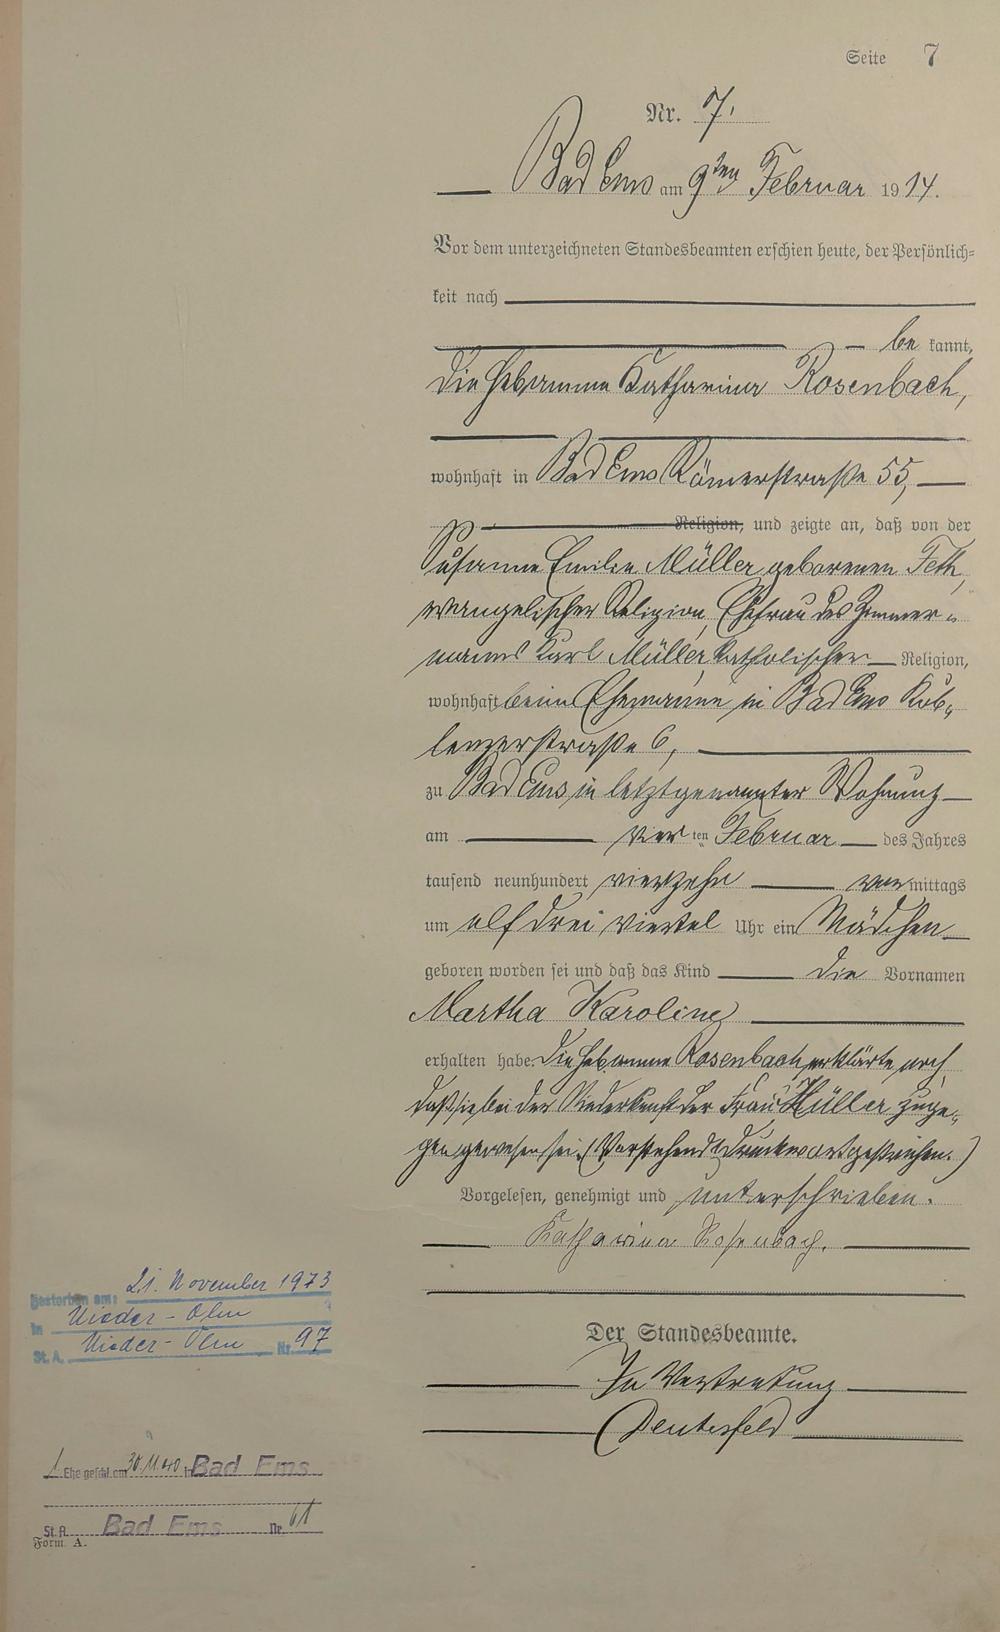 Seite 7
Nr. 7.
Bad Ems am 9ten Februar 1914.
Vor dem unterzeichneten Standesbeamten erschien heute, der Persönlich=
keit nach
be kannt,
die Hebamme Katharina Rosenbach,
wohnhaft in Bad Ems Römerstraße 55,
Religion, und zeigte an, daß von der
Susanna Emilie Müller geborenen Feth,
evangelischer Religion, Ehefrau des Zimmer=
manns Karl Müller, katholischer Religion,
wohnhaft beim Ehemanne in Bad Ems Kob=
lenzerstraße 6,
zu Bad Ems in letztgenannter Wohnung
am vier ten Februar des Jahres
tausend neunhundert vierzehn vor mittags
um elf drei viertel Uhr ein Mädchen
geboren worden sei und daß das Kind die Vornamen
Martha Karoline
erhalten habe. Die Hebamme Rosenbach erklärte noch,
daß sie bei der Niederkunft der Frau Müller zuge=
gen gewesen sei. (Vorstehend 1 Druckwort gestrichen.)
Vorgelesen, genehmigt und unterschrieben.
Katharina Rosenbach.
Der Standesbeamte.
In Vertretung
gestorben am: 21. November 1973
in Nieder-Olm
St. A. Nieder-Olm Nr. 97
1. Ehe geschl. am 30.11.40 in Bad Ems
St. A. Bad Ems Nr. 61
Form. A.